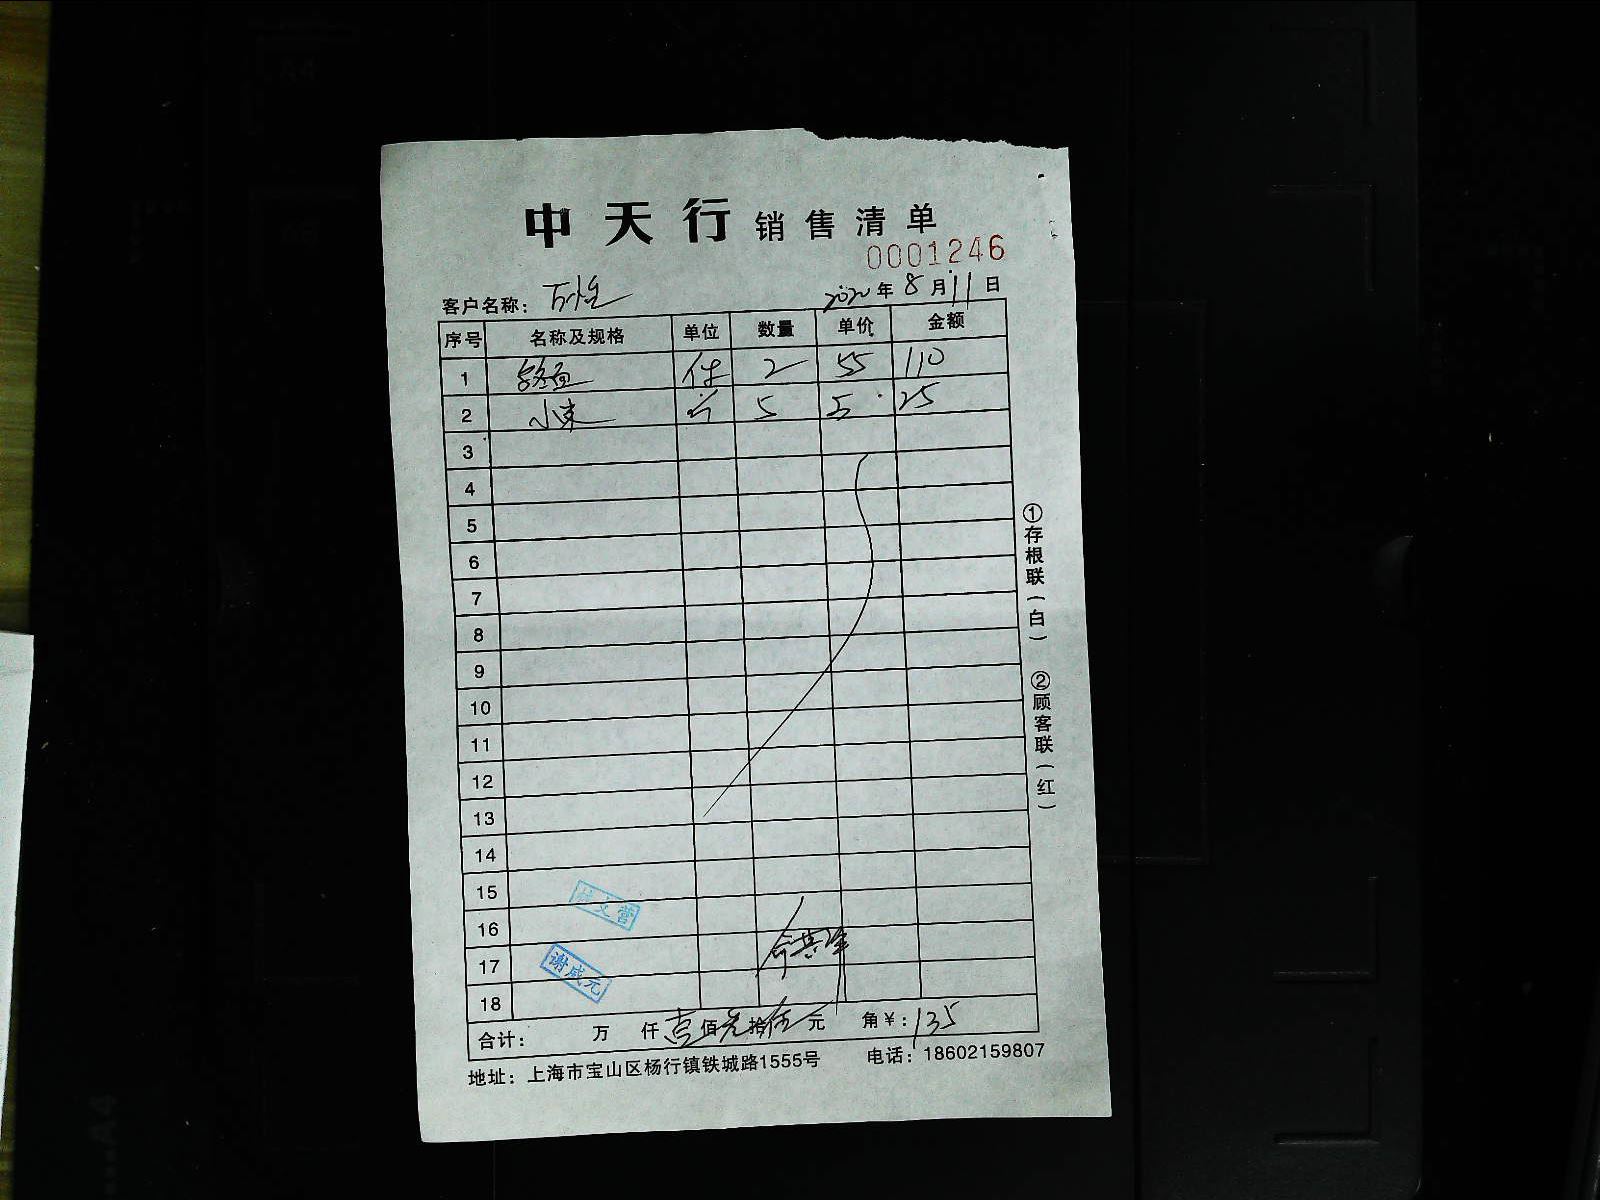 中天行 销售清单
0001246
客户名称： 2020年8月11日
序号 名称及规格 单位 数量 单价 金额
1 件 2 55 110
2 小束 5 5 25
3
4
5
6
7
8
9
10
11
12
13
14
15
16
17 谢咸元
18
合计： 万 仟 壹 佰 叁 拾 伍 元 角 ¥：135
地址：上海市宝山区杨行镇铁城路1555号 电话：18602159807
①存根联（白） ②顾客联（红）